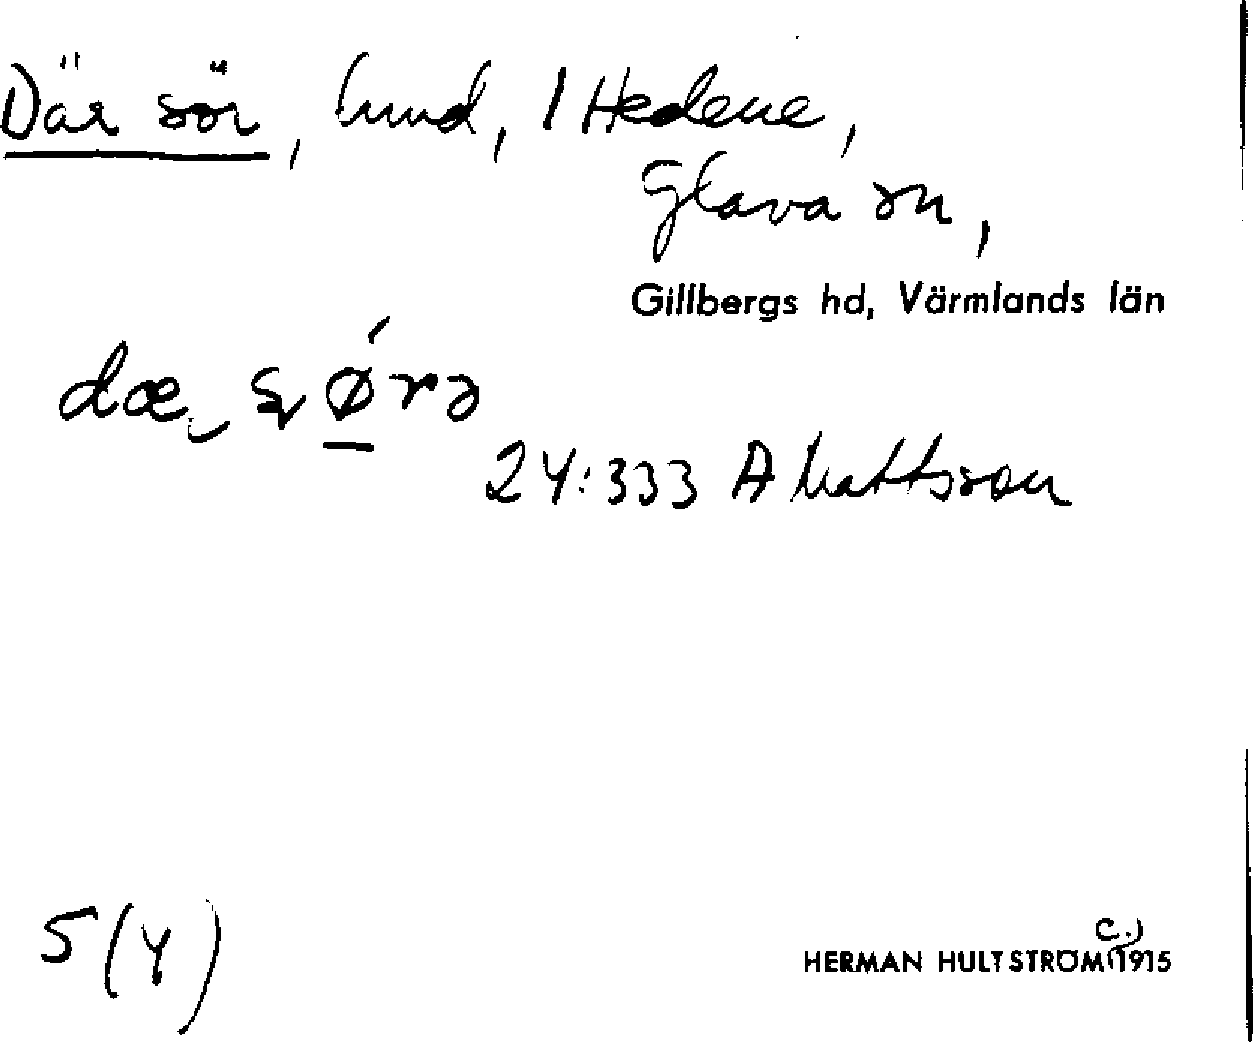 Där sör, hmd, 1 Hedene,
Glava sn,
Gillbergs hd, Värmlands län
dæ sørə
24:333 A Mattsson
5 (4)
C.)
HERMAN HULTSTRÖM (1915